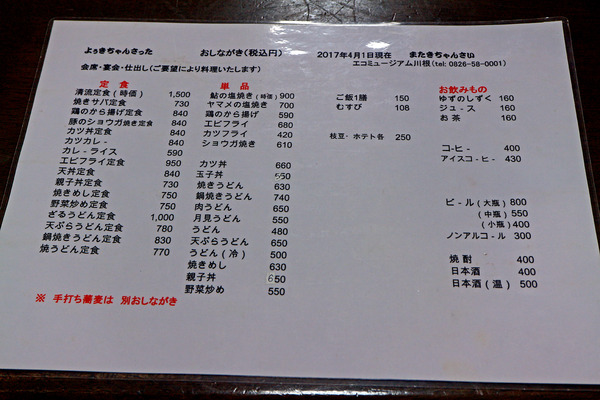 よぅきちゃんさった　おしながき（税込円）　2017年4月1日現在　またきちゃんさい
会席・宴会・仕出し（ご要望により料理いたします）　エコミュージアム川根（tel：0826-58-0001）
定食
清流定食（時価） 1,500
焼きサバ定食 730
鶏のから揚定食 840
豚のショウガ焼き定食 840
カツ丼定食 840
カツカレ- 840
カレ-ライス 590
エビフライ定食 950
天丼定食 840
親子丼定食 730
焼きめし定食 750
野菜炒め定食 750
ざるうどん定食 1,000
天ぷらうどん定食 780
鍋焼きうどん定食 830
焼うどん定食 770
※ 手打ち蕎麦は 別おしながき
単品
鮎の塩焼き（時価）900
ヤマメの塩焼き 700
鶏のから揚げ 590
エビフライ 680
カツフライ 420
ショウガ焼き 610
カツ丼 660
玉子丼
焼きうどん 650
鍋焼きうどん 740
肉うどん 650
月見うどん 550
うどん 480
天ぷらうどん 650
うどん（冷） 500
焼きめし 630
親子丼 650
野菜炒め 550
ご飯1膳 150
むすび 108
枝豆・ポテト各 250
お飲みもの
ゆずのしずく 160
ジュ-ス 160
お茶 160
コ-ヒ- 400
アイスコ-ヒ- 430
ビ-ル（大瓶）800
（中瓶）550
（小瓶）400
ノンアルコ-ル 300
焼酎 400
日本酒 400
日本酒（温） 500